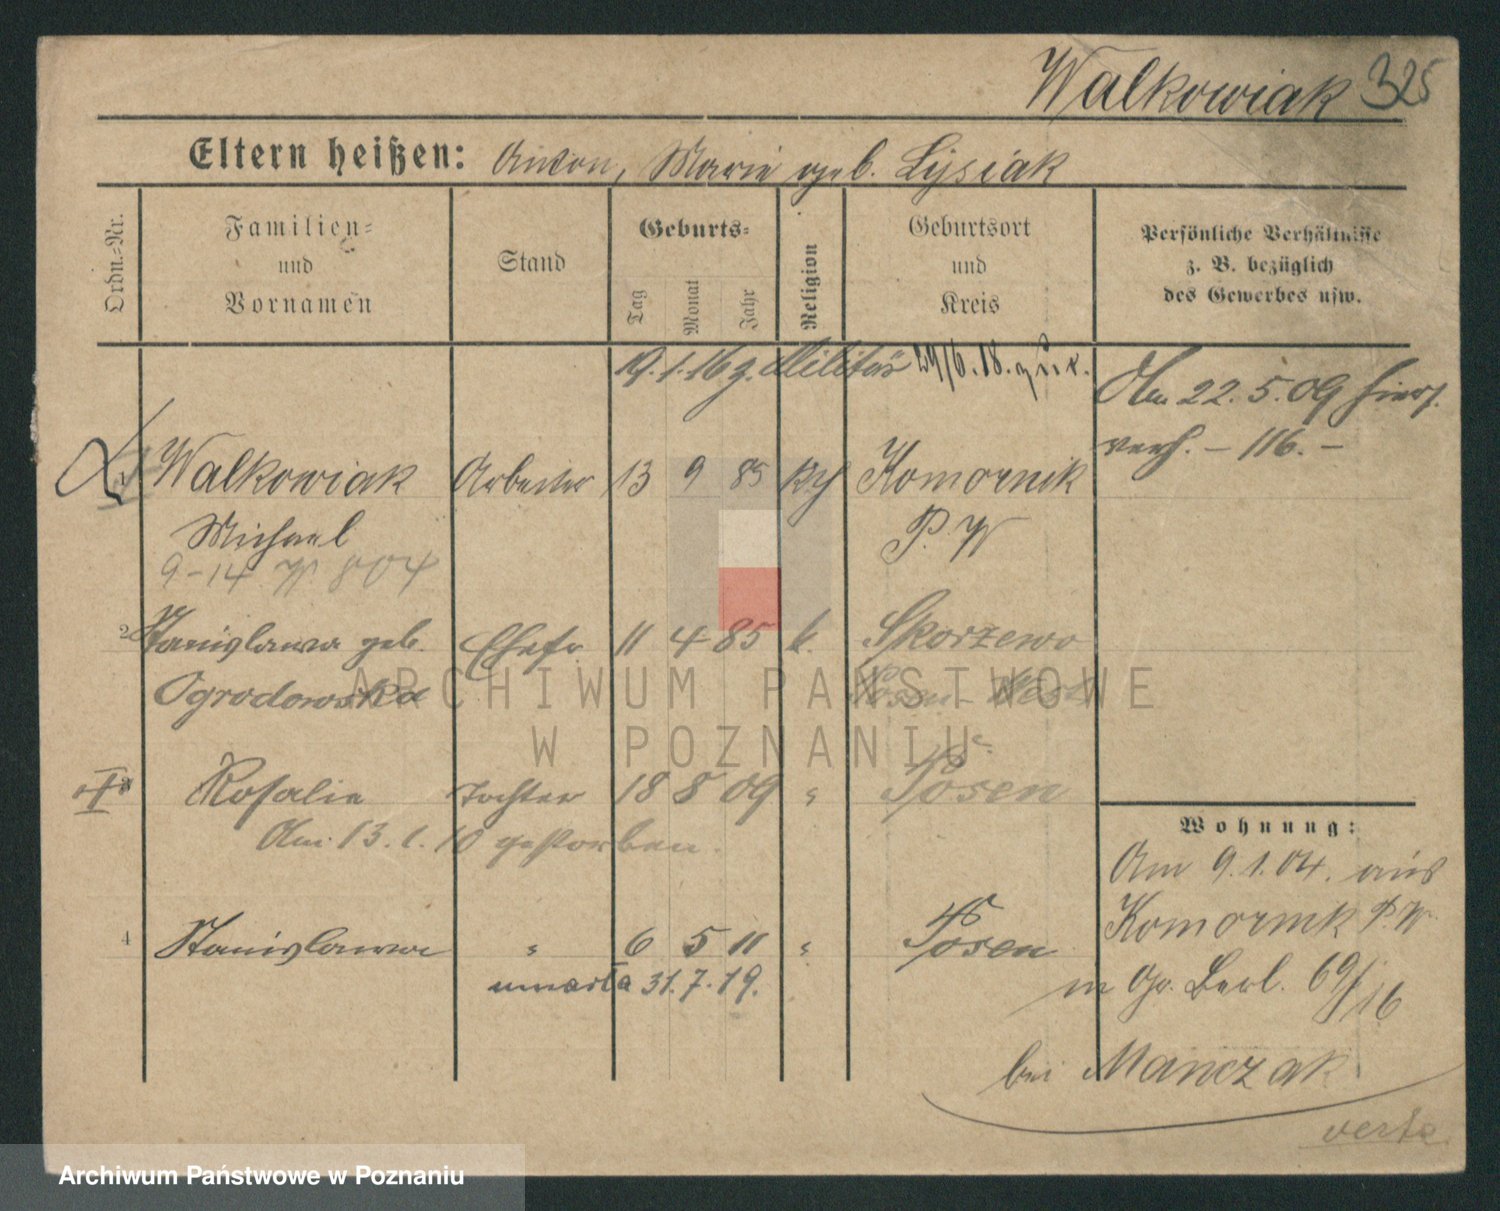 Walkowiak 325
Eltern heißen: Anton, Marie geb. Lysiak
Ordn.=Nr.
Familien=
und
Vornamen
Stand
Geburts=
Tag
Monat
Jahr
Religion
Geburtsort
und
Kreis
Persönliche Verhältnisse
z. B. bezüglich
des Gewerbes usw.
19.1.16 z. Militär 29/6.18. zur.
Am 22.5.09 hier
verh. – 116. –
1 Walkowiak Arbeiter 13 9 85 Komornik
Michael P. W
9-14 804
2 Stanislawa geb. Ehefr. 11 4 85 k. Skorzewo
Ogrodowska Posen West
3 Rosalie Tochter 18 8 09 " Posen
Am 13.1.10 gestorben.
4 Stanislawa " 6 5 11 " Posen
umarła 31.7.19.
Wohnung:
Am 9.1.04. aus
Komornik P. W.
in Gr. Berl. 69/16
bei Manczak
verte
ARCHIWUM PAŃSTWOWE
W POZNANIU
Archiwum Państwowe w Poznaniu